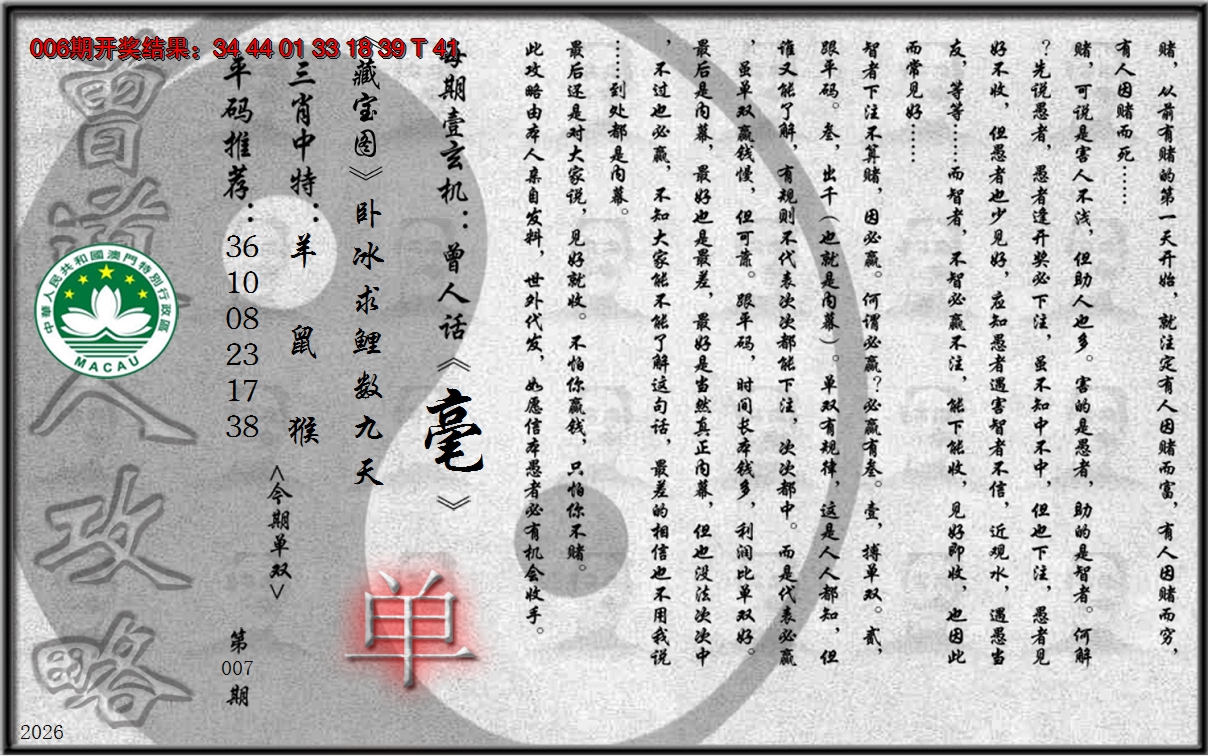 006期开奖结果：34 44 01 33 18 39 T 41
赌，从前有赌的第一天开始，就注定有人因赌而富，有人因赌而穷，
有人因赌而死……
赌，可说是害人不浅，但助人也多。害的是愚者，助的是智者。何解
？先说愚者，愚者逢开奖必下注，虽不知中不中，但也下注，愚者见
好不收，但愚者也少见好，应知愚者遇害智者不信，近观水，遇愚当
友，等等……而智者，不智必赢不注，能下能收，见好即收，也因此
而常见好……
智者下注不算赌，因必赢。何谓必赢？必赢有叁。壹，搏单双。贰，
跟平码。叁，出千（也就是内幕）。单双有规律，这是人人都知，但
谁又能了解，有规则不代表次次都能下注，次次都中。而是代表必赢
，虽单双赢钱慢，但可靠。跟平码，时间长本钱多，利润比单双好。
最后是内幕，最好也是最差，最好是当然真正内幕，但也没法次次中
，不过也必赢，不知大家能不能了解这句话，最差的相信也不用我说
……到处都是内幕。
最后还是对大家说，见好就收。不怕你赢钱，只怕你不赌。
此攻略由本人亲自发料，世外代发，如愿信本愚者必有机会收手。
每期壹玄机：曾人话《毫》
《藏宝图》卧冰求鲤数九天
单
三肖中特：羊 鼠 猴
<今期单双>
平码推荐：36 10 08 23 17 38
第007期
曾道人攻略
中華人民共和國澳門特別行政區
MACAU
2026